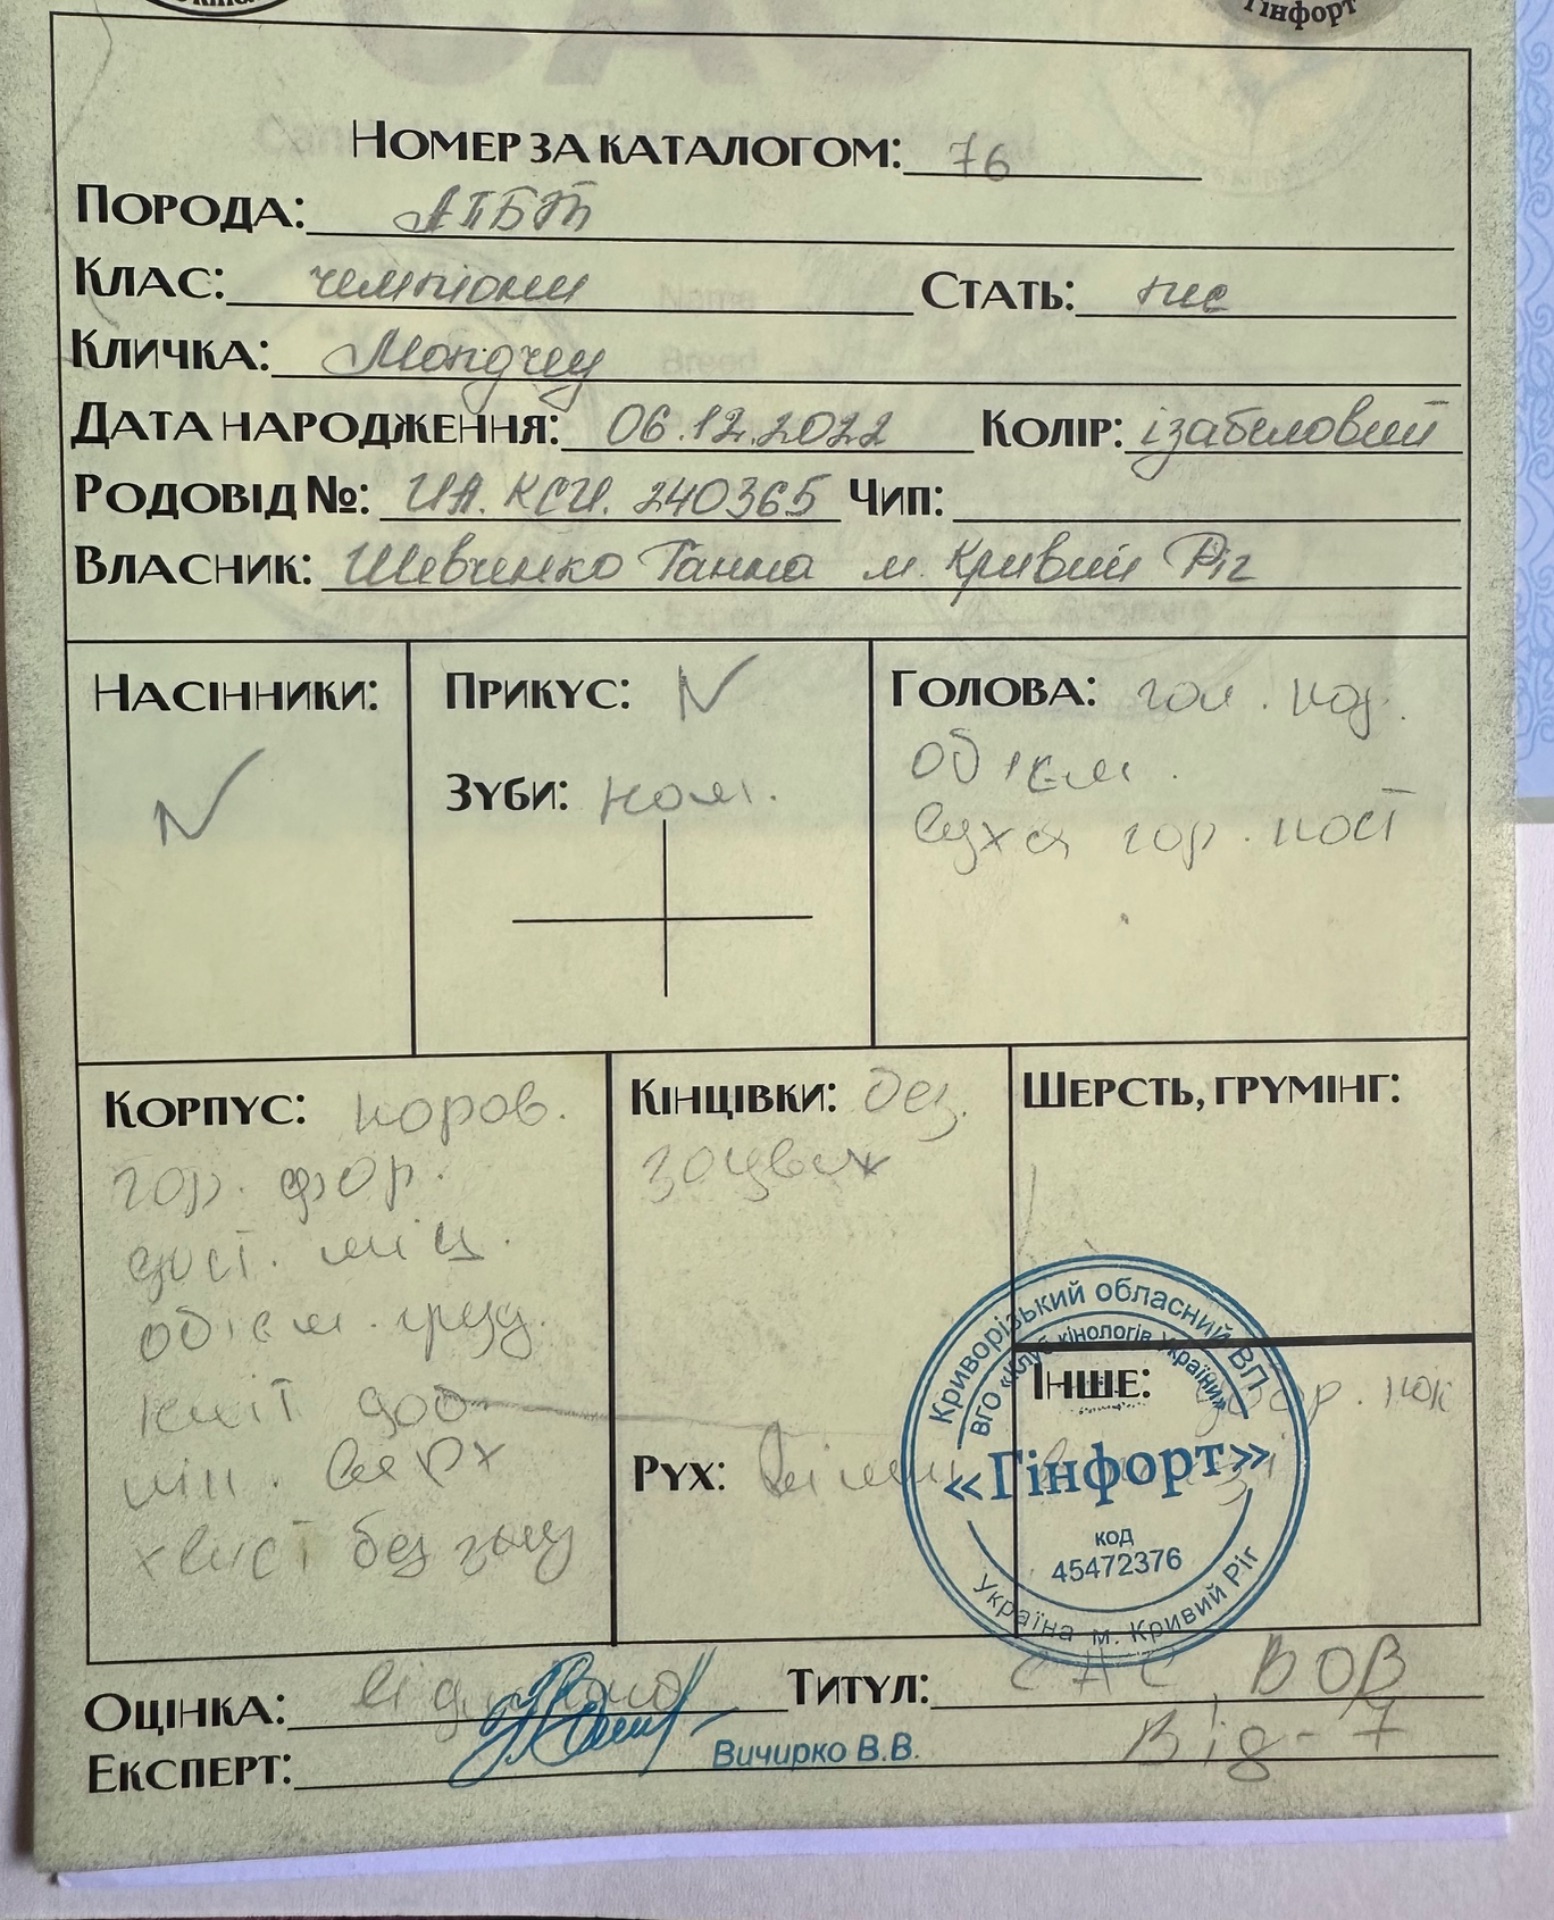 Гінфорт
НОМЕР ЗА КАТАЛОГОМ: 76
ПОРОДА: АПБТ
КЛАС: чемпіони СТАТЬ: пис
КЛИЧКА: Мондчеу
ДАТА НАРОДЖЕННЯ: 06.12.2022 КОЛІР: ізабеловий
РОДОВІД №: UA. КСU. 240365 ЧИП:
ВЛАСНИК: Шевченко Ганна м. Кривий Ріг
НАСІННИКИ: N
ПРИКУС: N
ЗУБИ: комп.
ГОЛОВА: гол. кор.
об'єм.
суха гор. пост
КОРПУС: коров.
гор. фор.
дост. міц.
об'єм. груд.
доб
верх
хвист без
КІНЦІВКИ: без
зауваж
РУХ:
ШЕРСТЬ, ГРУМІНГ:
ІНШЕ:
Криворізький обласний ВП
ВГО «Клуб кінологів України»
«Гінфорт»
код
45472376
Україна м. Кривий Ріг
ОЦІНКА: відмінно ТИТУЛ: САС, BOB
ЕКСПЕРТ: Вичирко В.В. Big-7